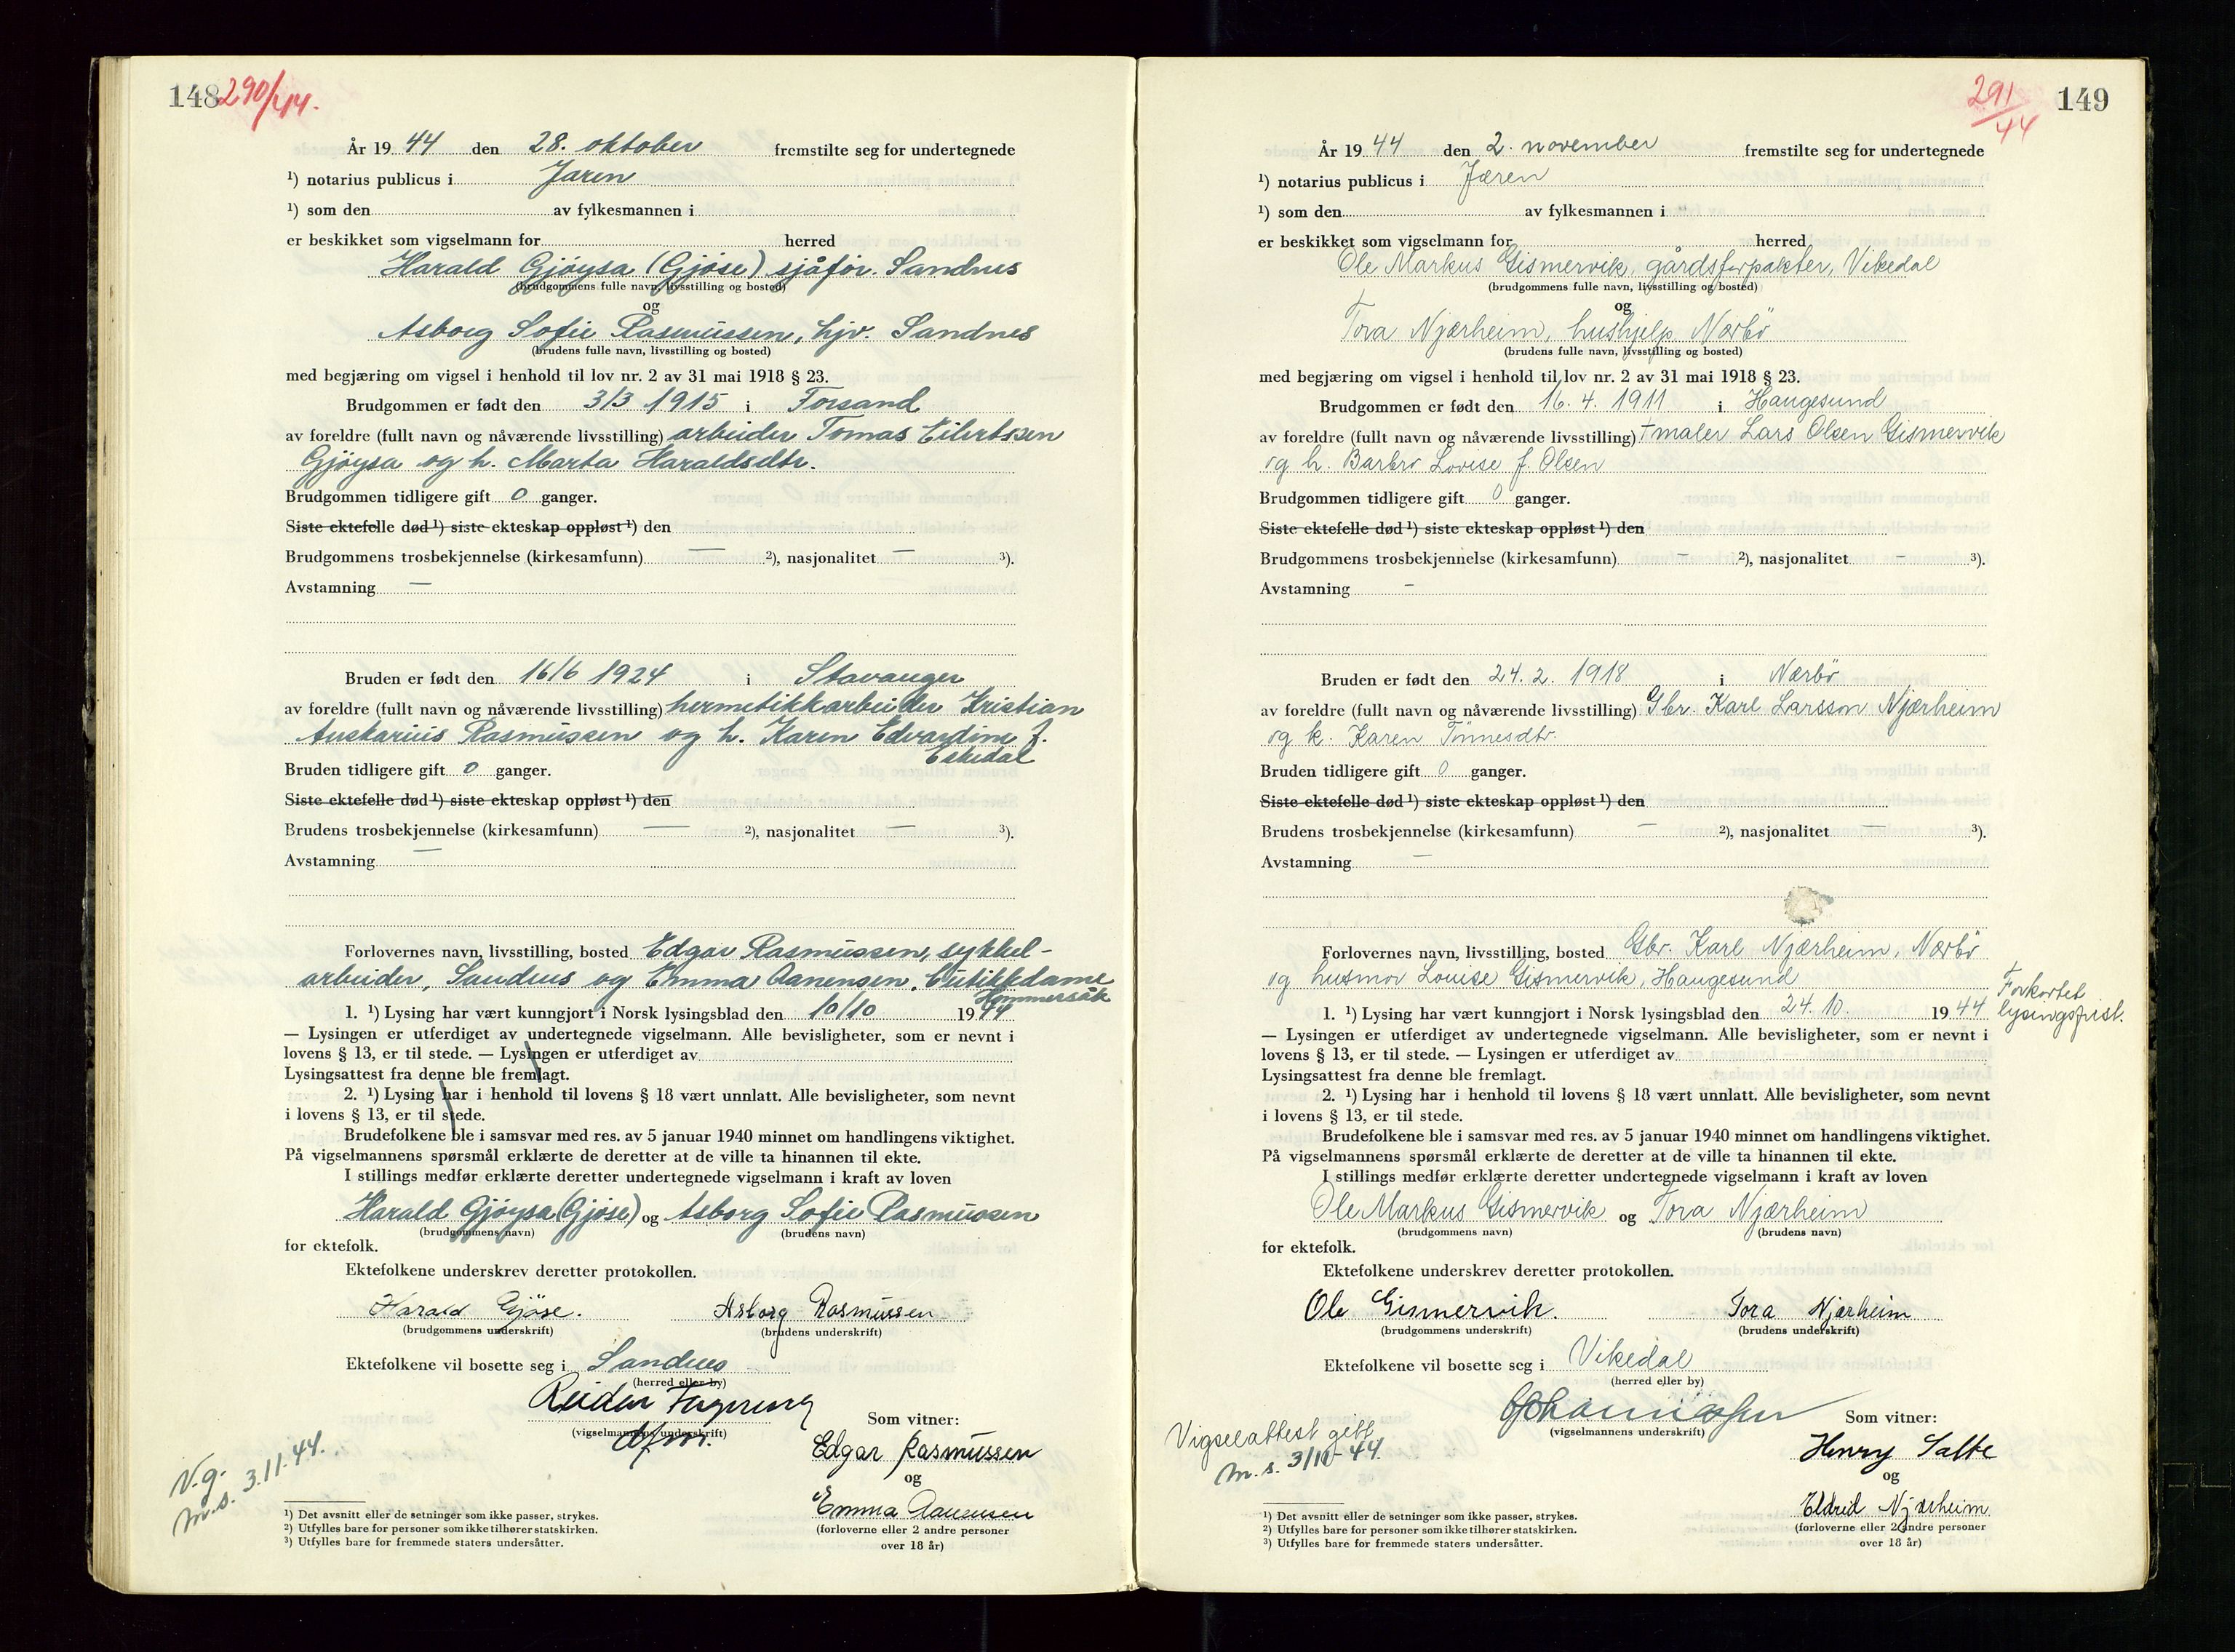 148 290/44.
År 19 44 den 28. oktober fremstilte seg for undertegnede
¹) notarius publicus i Jæren
¹) som den av fylkesmannen i
er beskikket som vigselmann for herred
Harald Gjøysa (Gjøse) sjåfør. Sandnes
(brudgommens fulle navn, livsstilling og bosted)
og
Asborg Sofie Rasmussen, hjv. Sandnes
(brudens fulle navn, livsstilling og bosted)
med begjæring om vigsel i henhold til lov nr. 2 av 31 mai 1918 § 23.
Brudgommen er født den 3/3 1915 i Forsand
av foreldre (fullt navn og nåværende livsstilling) arbeider Tomas Eilertssen
Gjøysa og h. Marta Haraldsdtr.
Brudgommen tidligere gift 0 ganger.
Siste ektefelle død ¹) siste ekteskap oppløst ¹) den
Brudgommens trosbekjennelse (kirkesamfunn) — ²), nasjonalitet — ³).
Avstamning —
Bruden er født den 16/6 1924 i Stavanger
av foreldre (fullt navn og nåværende livsstilling) hermetikkarbeider Kristian
Anskarius Rasmussen og h. Karen Edvardine f.
Eskedal
Bruden tidligere gift 0 ganger.
Siste ektefelle død ¹) siste ekteskap oppløst ¹) den
Brudens trosbekjennelse (kirkesamfunn) — ²), nasjonalitet — ³).
Avstamning —
Forlovernes navn, livsstilling, bosted Edgar Rasmussen, sykkel-
arbeider, Sandnes og Emma Aanensen. Butikkdame
Hommersåk
1. ¹) Lysing har vært kunngjort i Norsk lysingsblad den 10/10 19 44
— Lysingen er utferdiget av undertegnede vigselmann. Alle bevisligheter, som er nevnt i
lovens § 13, er til stede. — Lysingen er utferdiget av
Lysingsattest fra denne ble fremlagt.
2. ¹) Lysing har i henhold til lovens § 18 vært unnlatt. Alle bevisligheter, som nevnt
i lovens § 13, er til stede.
Brudefolkene ble i samsvar med res. av 5 januar 1940 minnet om handlingens viktighet.
På vigselmannens spørsmål erklærte de deretter at de ville ta hinannen til ekte.
I stillings medfør erklærte deretter undertegnede vigselmann i kraft av loven
Harald Gjøysa (Gjøse) og Asborg Sofie Rasmussen
(brudgommens navn) (brudens navn)
for ektefolk.
Ektefolkene underskrev deretter protokollen.
Harald Gjøse. Asborg Rasmussen
(brudgommens underskrift) (brudens underskrift)
Ektefolkene vil bosette seg i Sandnes
(herred eller by)
Reidar
Som vitner:
(vigselmannens underskrift)
Edgar Rasmussen
og
V.g.
m.s. 3.11.44.
Emma Aanensen
(forloverne eller 2 andre personer
over 18 år)
¹) Det avsnitt eller de setninger som ikke passer, strykes.
²) Utfylles bare for personer som ikke tilhører statskirken.
³) Utfylles bare for fremmede staters undersåtter.
291/44 149
År 19 44 den 2. november fremstilte seg for undertegnede
¹) notarius publicus i Jæren
¹) som den av fylkesmannen i
er beskikket som vigselmann for herred
Ole Markus Gismervik, gårdsforpakter, Vikedal
(brudgommens fulle navn, livsstilling og bosted)
og
Tora Njærheim, hushjelp Nærbö
(brudens fulle navn, livsstilling og bosted)
med begjæring om vigsel i henhold til lov nr. 2 av 31 mai 1918 § 23.
Brudgommen er født den 16. 4. 1911 i Haugesund
av foreldre (fullt navn og nåværende livsstilling) † maler Lars Olsen Gismervik
og h. Barbro Lovise f. Olsen
Brudgommen tidligere gift 0 ganger.
Siste ektefelle død ¹) siste ekteskap oppløst ¹) den
Brudgommens trosbekjennelse (kirkesamfunn) — ²), nasjonalitet — ³).
Avstamning —
Bruden er født den 24. 2. 1918 i Nærbö
av foreldre (fullt navn og nåværende livsstilling) Gbr. Karl Larsson Njærheim
og k. Karen Tönnesdtr.
Bruden tidligere gift 0 ganger.
Siste ektefelle død ¹) siste ekteskap oppløst ¹) den
Brudens trosbekjennelse (kirkesamfunn) — ²), nasjonalitet — ³).
Avstamning —
Forlovernes navn, livsstilling, bosted Gbr. Karl Njærheim, Nærbö
og husmor Louise Gismervik, Haugesund
1. ¹) Lysing har vært kunngjort i Norsk lysingsblad den 24. 10. 19 44
Forkortet
lysingsfrist.
— Lysingen er utferdiget av undertegnede vigselmann. Alle bevisligheter, som er nevnt i
lovens § 13, er til stede. — Lysingen er utferdiget av
Lysingsattest fra denne ble fremlagt.
2. ¹) Lysing har i henhold til lovens § 18 vært unnlatt. Alle bevisligheter, som nevnt
i lovens § 13, er til stede.
Brudefolkene ble i samsvar med res. av 5 januar 1940 minnet om handlingens viktighet.
På vigselmannens spørsmål erklærte de deretter at de ville ta hinannen til ekte.
I stillings medfør erklærte deretter undertegnede vigselmann i kraft av loven
Ole Markus Gismervik og Tora Njærheim
(brudgommens navn) (brudens navn)
for ektefolk.
Ektefolkene underskrev deretter protokollen.
Ole Gismervik. Tora Njærheim
(brudgommens underskrift) (brudens underskrift)
Ektefolkene vil bosette seg i Vikedal
(herred eller by)
Som vitner:
(vigselmannens underskrift)
Vigselattest gitt
m.s. 3/11-44.
Henry Salte
og
Eldrid Njærheim
(forloverne eller 2 andre personer
over 18 år)
¹) Det avsnitt eller de setninger som ikke passer, strykes.
²) Utfylles bare for personer som ikke tilhører statskirken.
³) Utfylles bare for fremmede staters undersåtter.